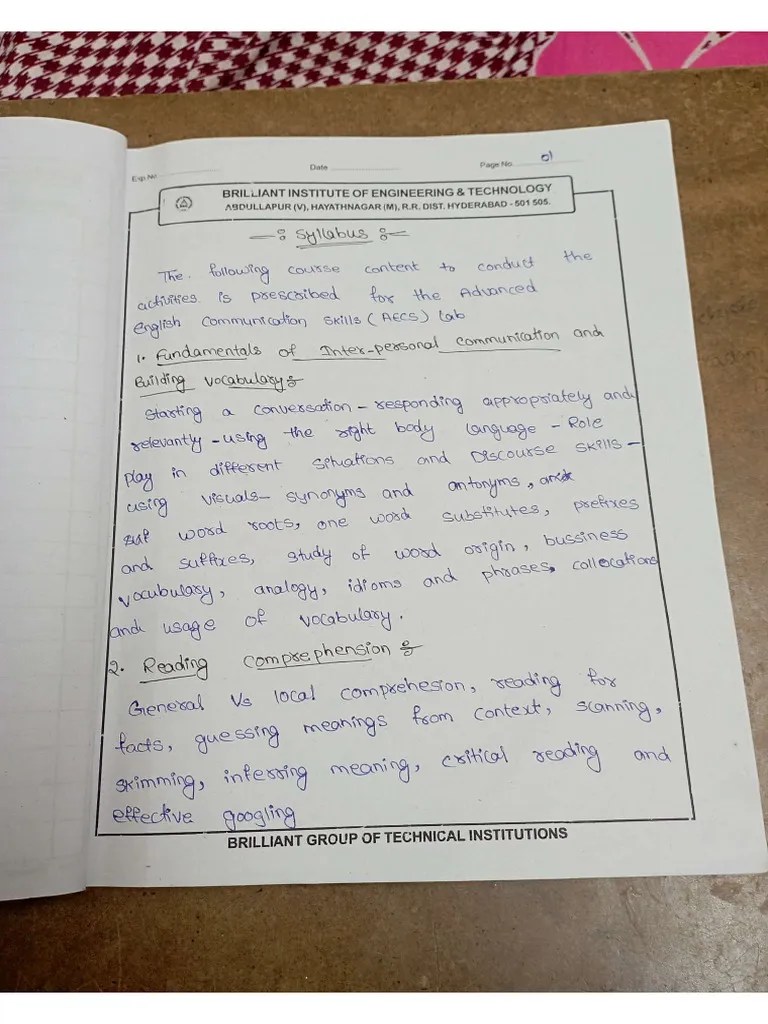 Exp.No.
Date
Page No. 01
BRILLIANT INSTITUTE OF ENGINEERING & TECHNOLOGY
ABDULLAPUR (V), HAYATHNAGAR (M), R.R. DIST. HYDERABAD - 501 505.
Syllabus
The following course content to conduct the
activities is prescribed for the Advanced
English Communication Skills (AECS) Lab
1. Fundamentals of Inter-personal communication and
Building Vocabulary:-
Starting a conversation - responding appropriately and
relevantly - using the right body language - Role
play in different situations and Discourse skills -
using visuals - synonyms and antonyms,
word roots, one word substitutes, prefixes
and suffixes, study of word origin, bussiness
vocubulary, analogy, idioms and phrases, collocations
and usage of vocabulary.
2. Reading comprephension:-
General Vs local comprehesion, reading for
facts, guessing meanings from context, scanning,
skimming, inferring meaning, critical reading and
effective googling
BRILLIANT GROUP OF TECHNICAL INSTITUTIONS